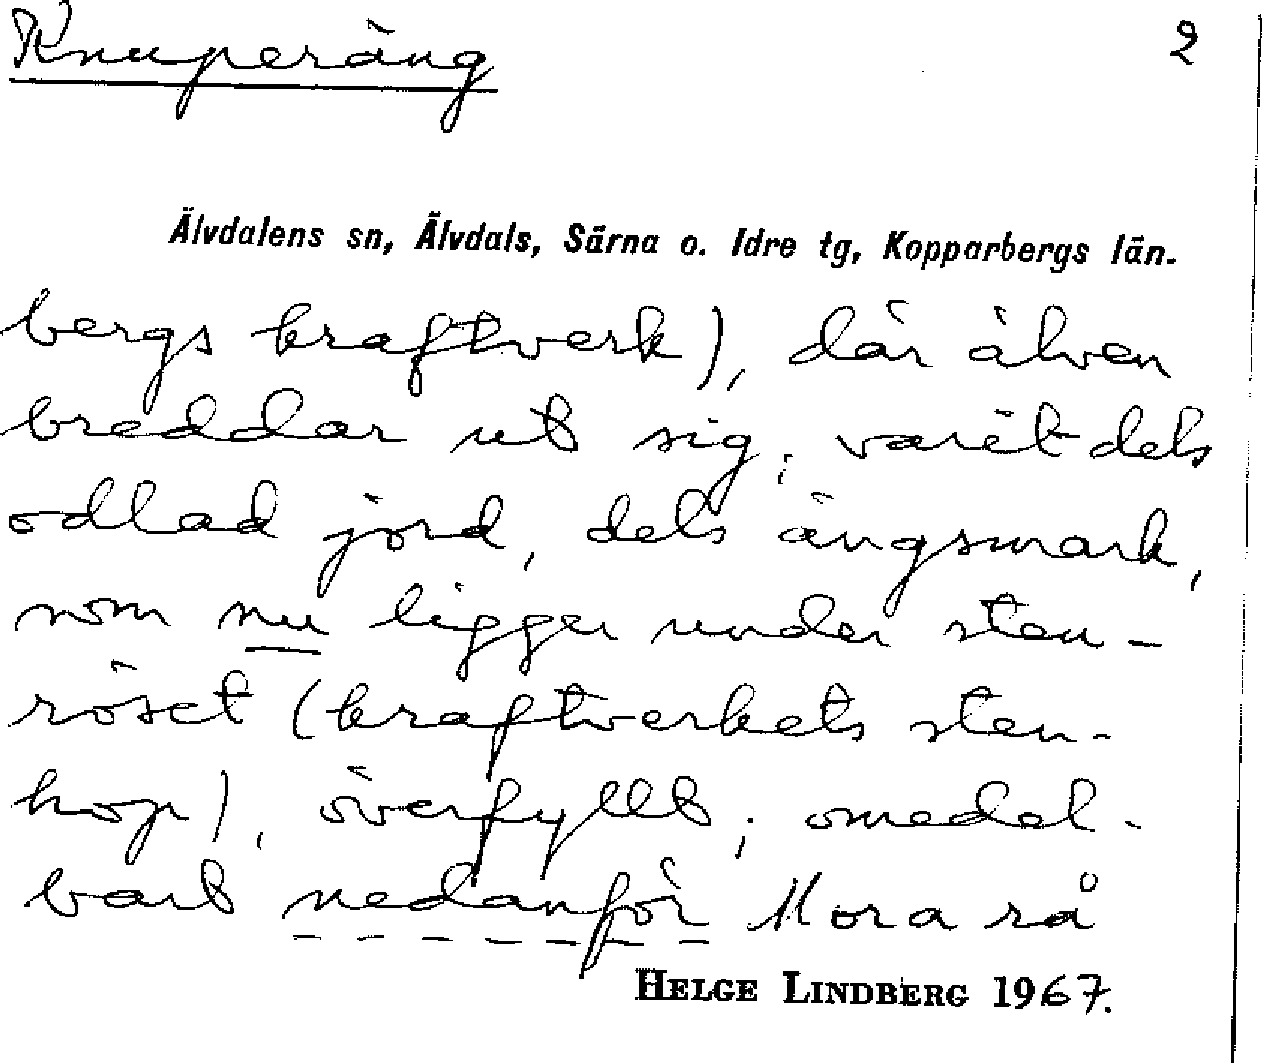 Knuperäng 2
Älvdalens sn, Älvdals, Särna o. Idre tg, Kopparbergs län.
bergs kraftverk), där älven
breddar ut sig; varit dels
odlad jord, dels ängsmark,
som nu ligger under sten-
röset (kraftverkets sten-
hop), överfyllt; omedel-
bart nedanför Mora rå
HELGE LINDBERG 1967.